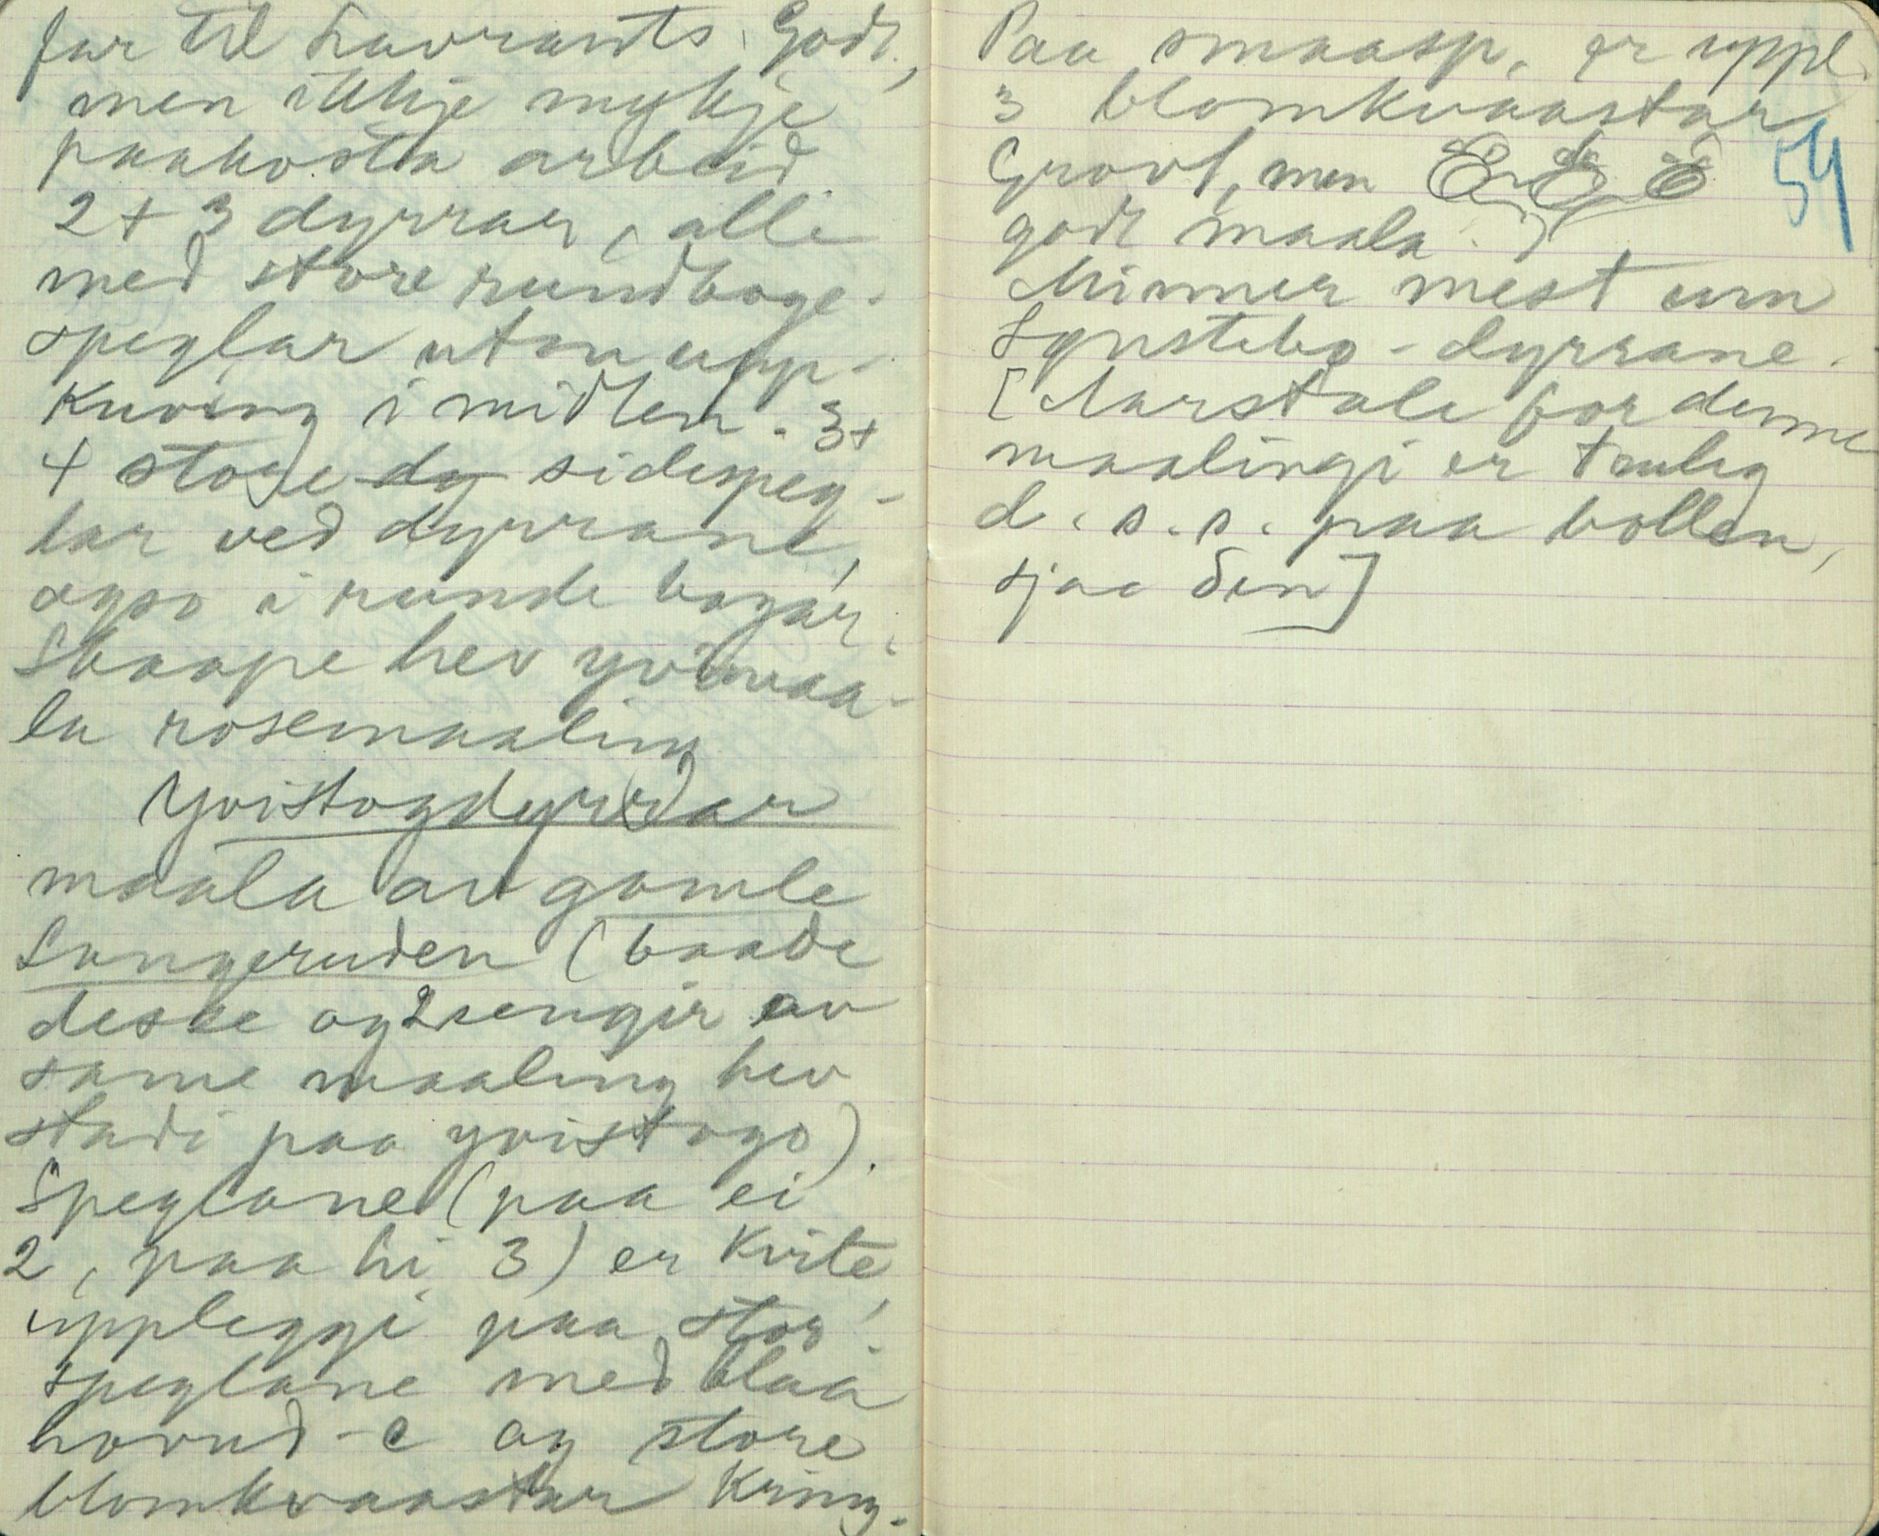 far til Lavrants. Godt,
men ikkje mykje
paakosta arbeid
2 + 3 dyrrar, alle
med store rundboge-
speglar utan upp-
kuving i midten. 3 +
4 store dy sidespeg-
lar ved dyrrane,
ogso i runde bogar.
Skaape hev yvimaa-
la rosemaaling
Yvistogdyrrar
maala av gamle
Langeruden (baade
deske og 2 sengir av
same maaling hev
stadi paa yvistogo).
Speglane (paa ei
2, paa hi 3) er kvite,
uppleggi paa stor-
speglane med blaa
hovud-C og store
blomkvaastar kring.
Paa smaasp. er uppl.
3 blomkvaastar
Grovt, men
godt maala.
Minner mest um
Synstebø-dyrrane.
[Aarstale for denne
maalingi er truleg
d. s. s. paa bollen,
sjaa den]
54